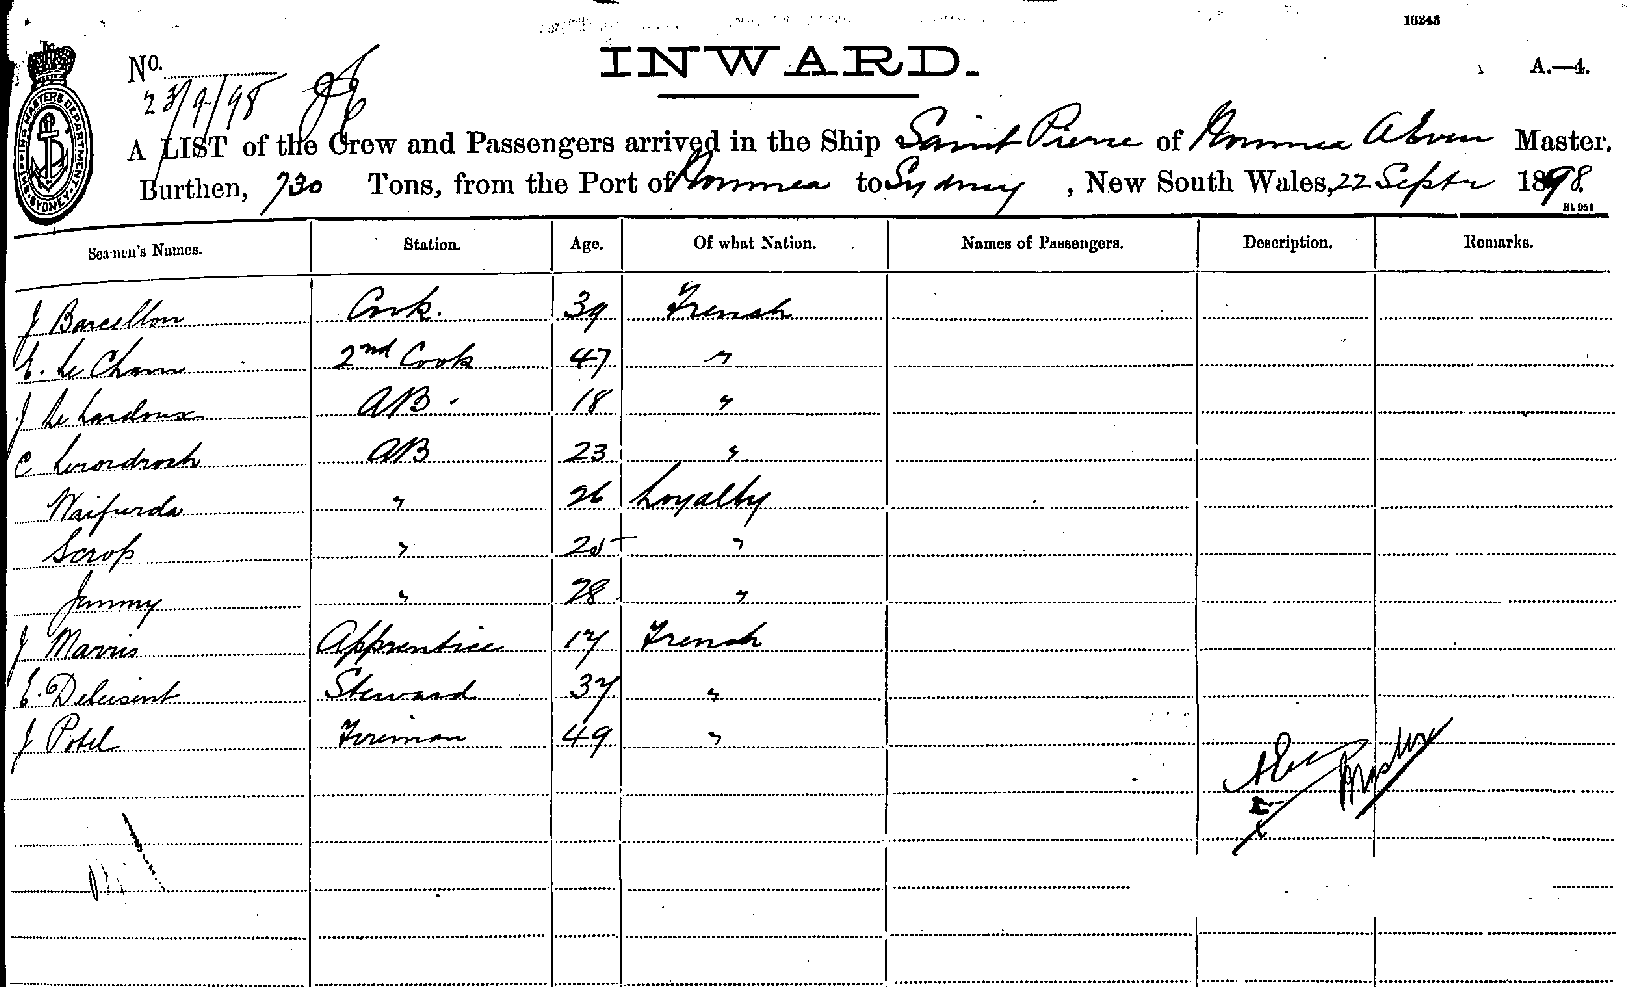 16243
INWARD.
No.
A.—4.
23/9/98
A LIST of the Crew and Passengers arrived in the Ship Saint Pierre of Noumea Alven Master,
Burthen, 730 Tons, from the Port of Noumea to Sydney, New South Wales, 22 Septr 1898.
SHIPPING MASTERS DEPARTMENT SYDNEY
Seamen's Names. Station. Age. Of what Nation. Names of Passengers. Description. Remarks.
J Barcellon Cook. 39 French
E. Le Cham 2nd Cook 47 "
J Le Lardoux AB. 18 "
C AB 23 "
Waifurda " 26 Loyalty
Scrop " 25 "
Jemmy " 28 "
J Marris Apprentice 17 French
E. Delusint Steward 37 "
J Potel Fireman 49 "
Master